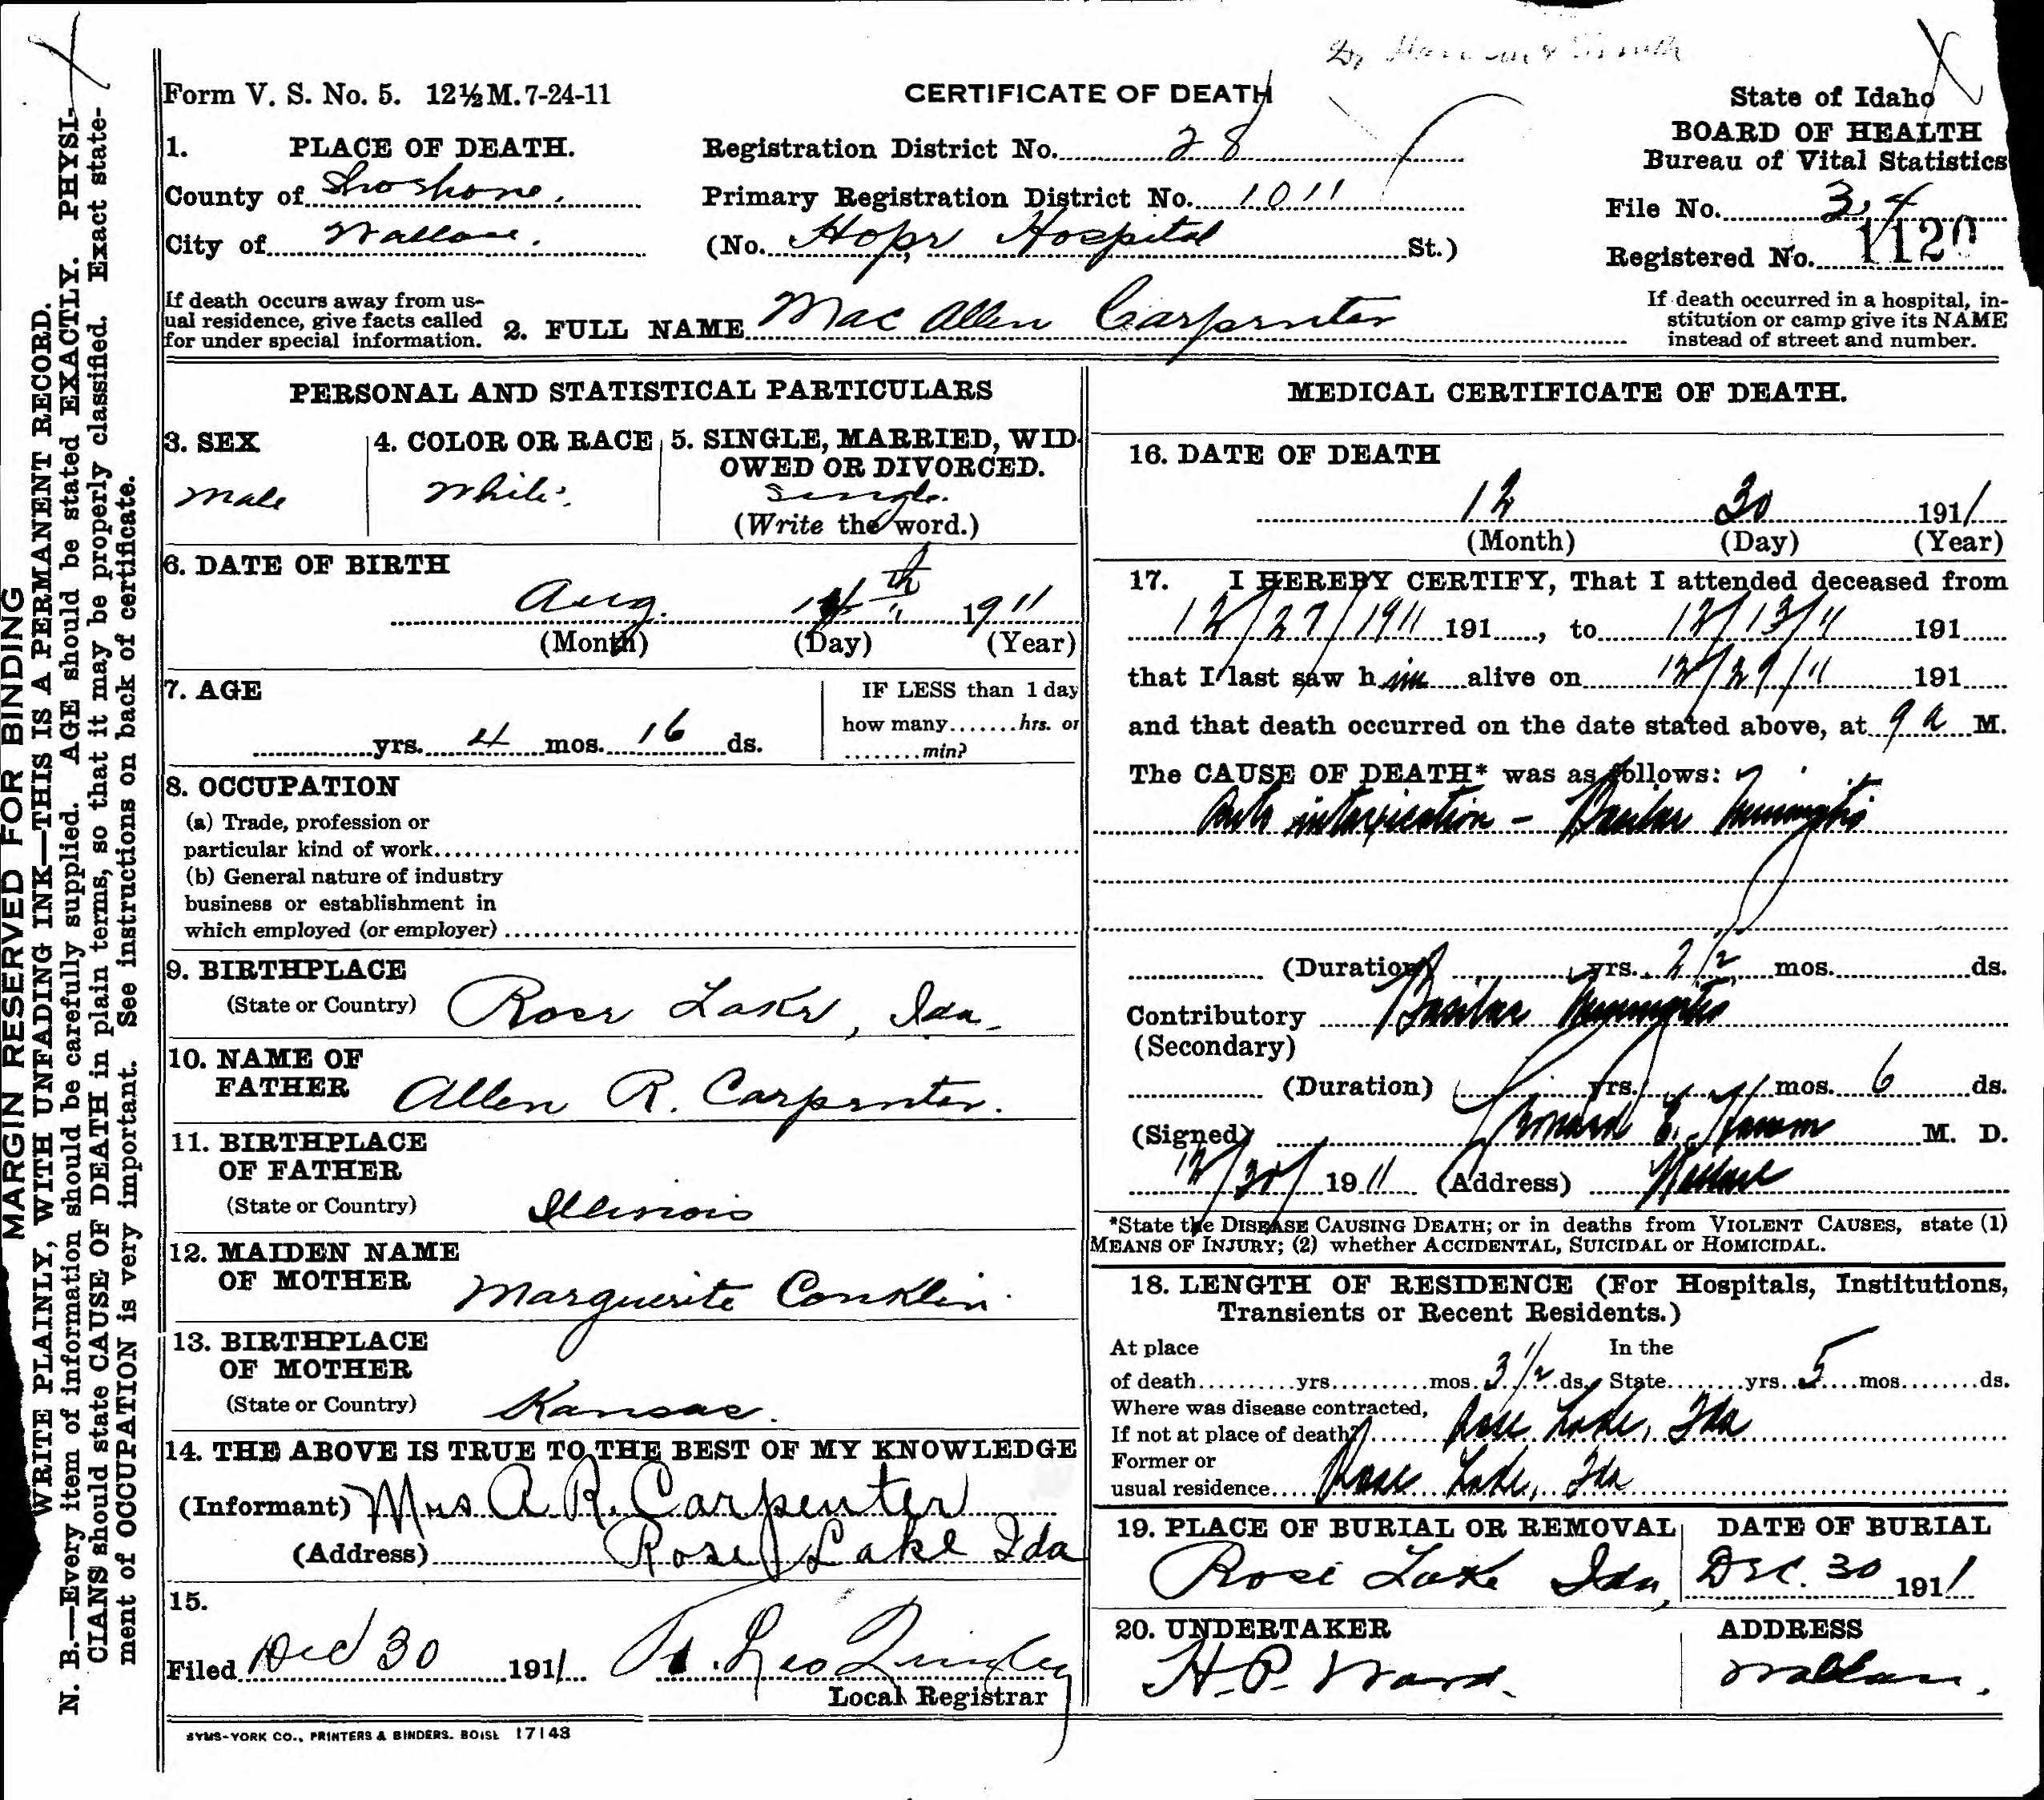 Form V. S. No. 5. 12½M. 7-24-11
CERTIFICATE OF DEATH
State of Idaho
BOARD OF HEALTH
Bureau of Vital Statistics
File No. 34
Registered No. 1120
1. PLACE OF DEATH.
County of Shoshone.
City of Wallace.
Registration District No. 28
Primary Registration District No. 1011
(No. Hope Hospital St.)
If death occurs away from us-
ual residence, give facts called
for under special information.
2. FULL NAME Mac Allen Carpenter
If death occurred in a hospital, in-
stitution or camp give its NAME
instead of street and number.
PERSONAL AND STATISTICAL PARTICULARS
3. SEX
Male
4. COLOR OR RACE
White.
5. SINGLE, MARRIED, WID-
OWED OR DIVORCED.
Single.
(Write the word.)
6. DATE OF BIRTH
Aug. 14th 1911
(Month) (Day) (Year)
7. AGE
yrs. 4 mos. 16 ds.
IF LESS than 1 day
how many hrs. or
min?
8. OCCUPATION
(a) Trade, profession or
particular kind of work
(b) General nature of industry
business or establishment in
which employed (or employer)
9. BIRTHPLACE
(State or Country) Rose Lake, Ida.
10. NAME OF
FATHER Allen R. Carpenter.
11. BIRTHPLACE
OF FATHER
(State or Country) Illinois
12. MAIDEN NAME
OF MOTHER Marguerite Conklin.
13. BIRTHPLACE
OF MOTHER
(State or Country) Kansas.
14. THE ABOVE IS TRUE TO THE BEST OF MY KNOWLEDGE
(Informant) Mrs A. R. Carpenter
(Address) Rose Lake Ida
15.
Filed Dec 30 1911
Local Registrar
MEDICAL CERTIFICATE OF DEATH.
16. DATE OF DEATH
12 30 1911
(Month) (Day) (Year)
17. I HEREBY CERTIFY, That I attended deceased from
12/27/1911 191 , to 12/13/11 191
that I last saw him alive on 12/29/11 191
and that death occurred on the date stated above, at 9 a M.
The CAUSE OF DEATH* was as follows:
Auto intoxication - Basilar Meningitis
(Duration) yrs. 2 1/2 mos. ds.
Contributory Basilar Meningitis
(Secondary)
(Duration) yrs. mos. 6 ds.
(Signed) E. M. D.
12/30/ 1911 (Address) Wallace
*State the DISEASE CAUSING DEATH; or in deaths from VIOLENT CAUSES, state (1)
MEANS OF INJURY; (2) whether ACCIDENTAL, SUICIDAL or HOMICIDAL.
18. LENGTH OF RESIDENCE (For Hospitals, Institutions,
Transients or Recent Residents.)
At place In the
of death yrs. mos. 3 1/2 ds. State yrs. 5 mos. ds.
Where was disease contracted,
If not at place of death? Rose Lake, Ida
Former or
usual residence Rose Lake, Ida
19. PLACE OF BURIAL OR REMOVAL
Rose Lake Ida,
DATE OF BURIAL
Dec. 30 1911
20. UNDERTAKER
H. P. Ward.
ADDRESS
Wallace.
SYMS-YORK CO., PRINTERS & BINDERS. BOISE 17143
MARGIN RESERVED FOR BINDING
WRITE PLAINLY, WITH UNFADING INK—THIS IS A PERMANENT RECORD.
N. B.—Every item of information should be carefully supplied. AGE should be stated EXACTLY. PHYSI-
CIANS should state CAUSE OF DEATH in plain terms, so that it may be properly classified. Exact state-
ment of OCCUPATION is very important. See instructions on back of certificate.